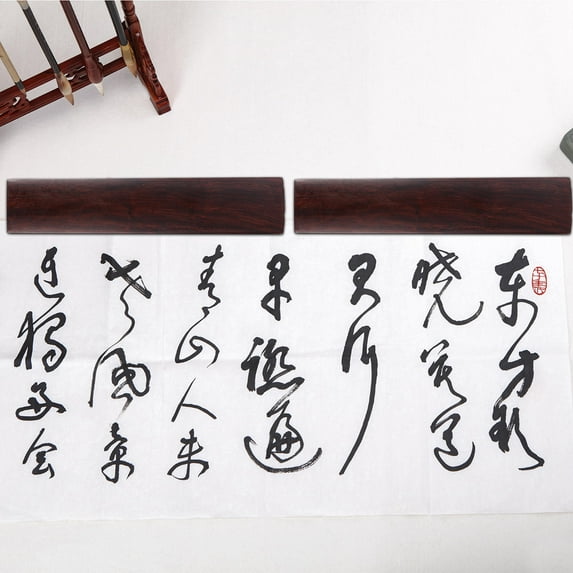 东方欲
晓莫道
君行
早踏遍
青山人未
老风景
独会